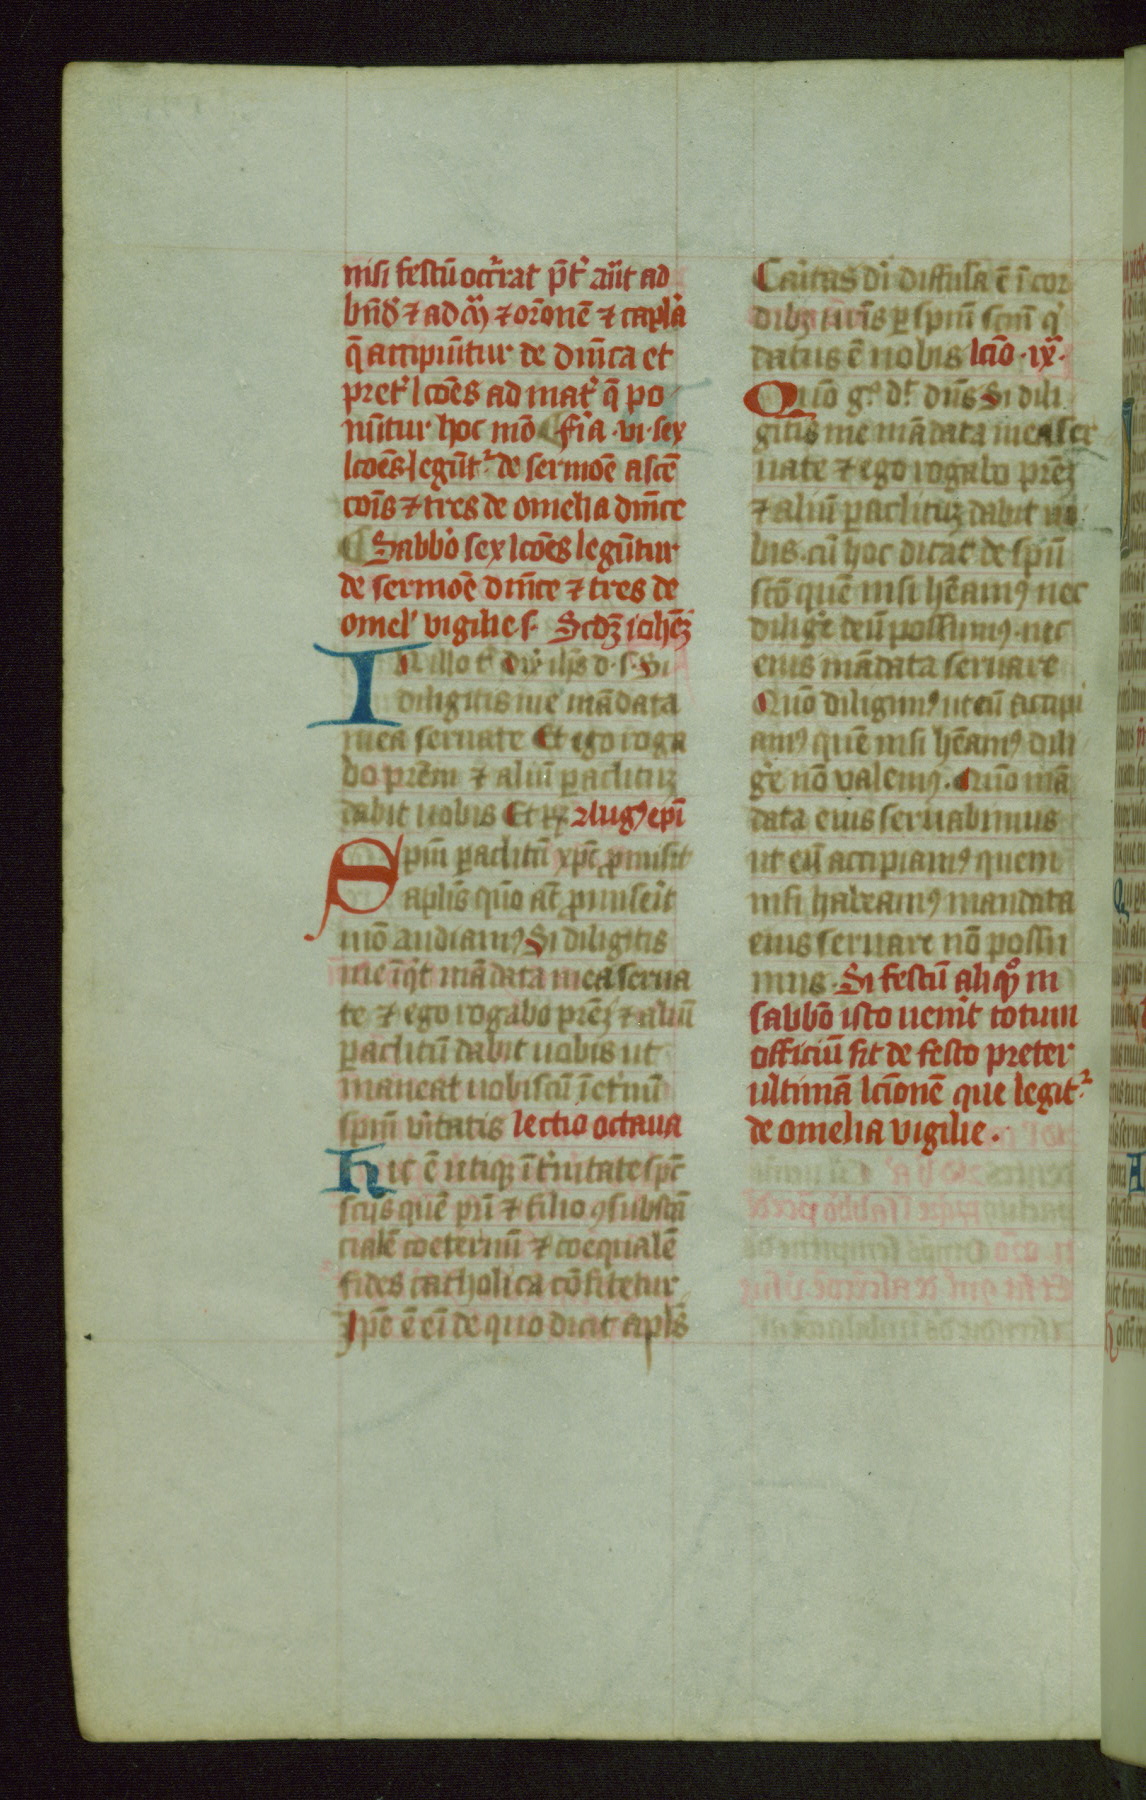 nisi festū occ̄rrat p̄t̓ an̄t ad
bn̄d̓ ⁊ ad m̄ ⁊ or̄onē ⁊ capl̓a
q̄ accipiūtur de dn̄ica et
pret̓ lc̄oēs ad mat̓ q̄ po
nūtur hoc mō fr̓ia · vi · sex
lc̄oēs legūt᷑ de sermōe ascē
cōis ⁊ tres de omelia dn̄ice
Sabb̓o sex lc̄oēs legūtur
de sermōe dn̄ice ⁊ tres de
omel̓ vigilie s. Scd̄ꝫ ioh̄eꝫ
In illo t̓ dix̓ ih̄s d · s · Si
diligitis me mādata
mea seruate Et ego roga
bo prēm ⁊ aliū paclituꝫ
dabit uobis Et rꝫ Augꝯ ep̄i
Spm̄ paclitū xp̄c ꝓmisit
aplīs quō āt ꝓmiserit
mō audiamꝯ Si diligitis
me īq̓t mādata mea serua
te ⁊ ego rogabo prēꝫ ⁊ aliū
paclitū dabit uobis ut
maneat uobiscū ī et̓nū
spm̄ vitatis lectio octaua
Hic ē utiqꝫ ī t̓nitate sp̄c
scūs quē pr̄i ⁊ filio ꝯsubstā
cialē coeternū ⁊ coequalē
fides catholica cōfitetur
Ipē ē eī de quo dicit apl̄s
Caritas di̓ diffusa ē ī cor
dibꝫ nr̄is p spm̄ scm̄ q̓
datus ē nobis lc̄io · ix̄ ·
Quō gͦ dt̓ dn̄s Si dili
gitis me mādata mea ser
uate ⁊ ego rogabo prēꝫ
⁊ aliū paclituꝫ dabit uo
bis · cū hoc dicāt de spū
scō quē nisi hēamꝯ nec
dilige̓ deū possumꝯ · nec
eius mādata seruare
Quō diligimꝯ ut eū accipi
amꝯ quē nisi hēamꝯ dili
ge̓ nō valemꝯ · Quō mā
data eius seruabimus
ut eū accipiamꝯ quem
nisi habeamꝯ mandata
eius seruare nō possu
mus · Si festū aliqͦ in
sabbō isto uenit̓ totum
officiū fit de festo preter
ultimā lc̄ionē que legit᷑
de omelia vigilie ·